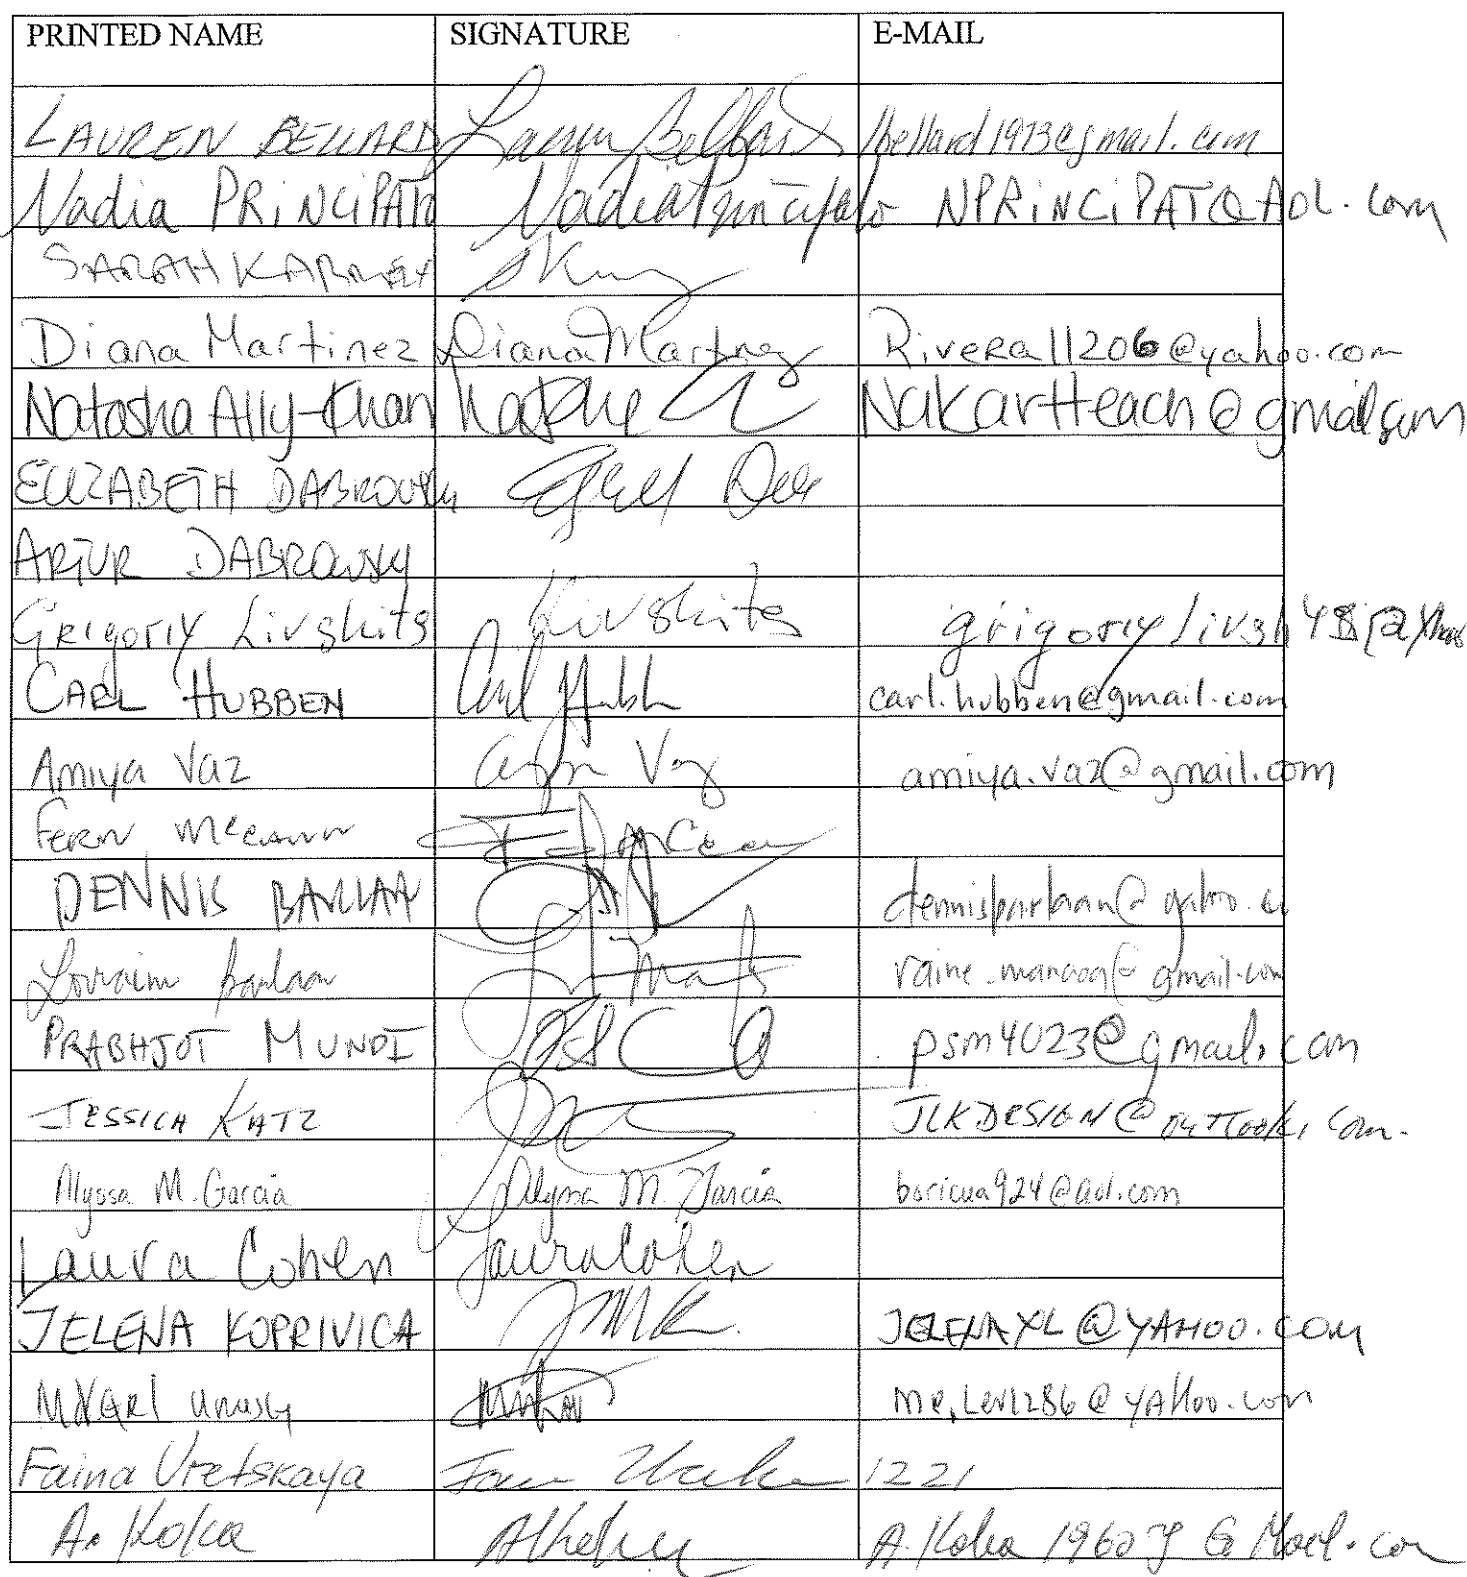 PRINTED NAME SIGNATURE E-MAIL
LAUREN BELLARD Lauren Bellard lbellard1973@gmail.com
Nadia PRINCIPATO Nadia Principato NPRINCIPATO@AOL.com
SARAH KARMELY
Diana Martinez Diana Martinez Rivera11206@yahoo.com
Natasha Ally-Khan NAKArtteach@gmail.com
ELIZABETH DABROVSKY
ARTUR DABROWSKY
Grigoriy Livshits Livshits
CARL HUBBEN Carl Hubb carl.hubben@gmail.com
Amiya Vaz Vaz amiya.vaz@gmail.com
Fern McCann
DENNIS BARLAAN dennisbarlaan@yahoo.
Lorraine barlaan gmail.com
PRABHJOT MUNDI psm4023@gmail.com
JESSICA KATZ JLKDESIGN@outlook.com.
Alyssa M. Garcia Alyssa M. Garcia boricua924@aol.com
Laura Cohen Laura Cohen
JELENA KOPRIVICA JELENAXL@YAHOO.COM
Faina Uretskaya 1221
A. Koka